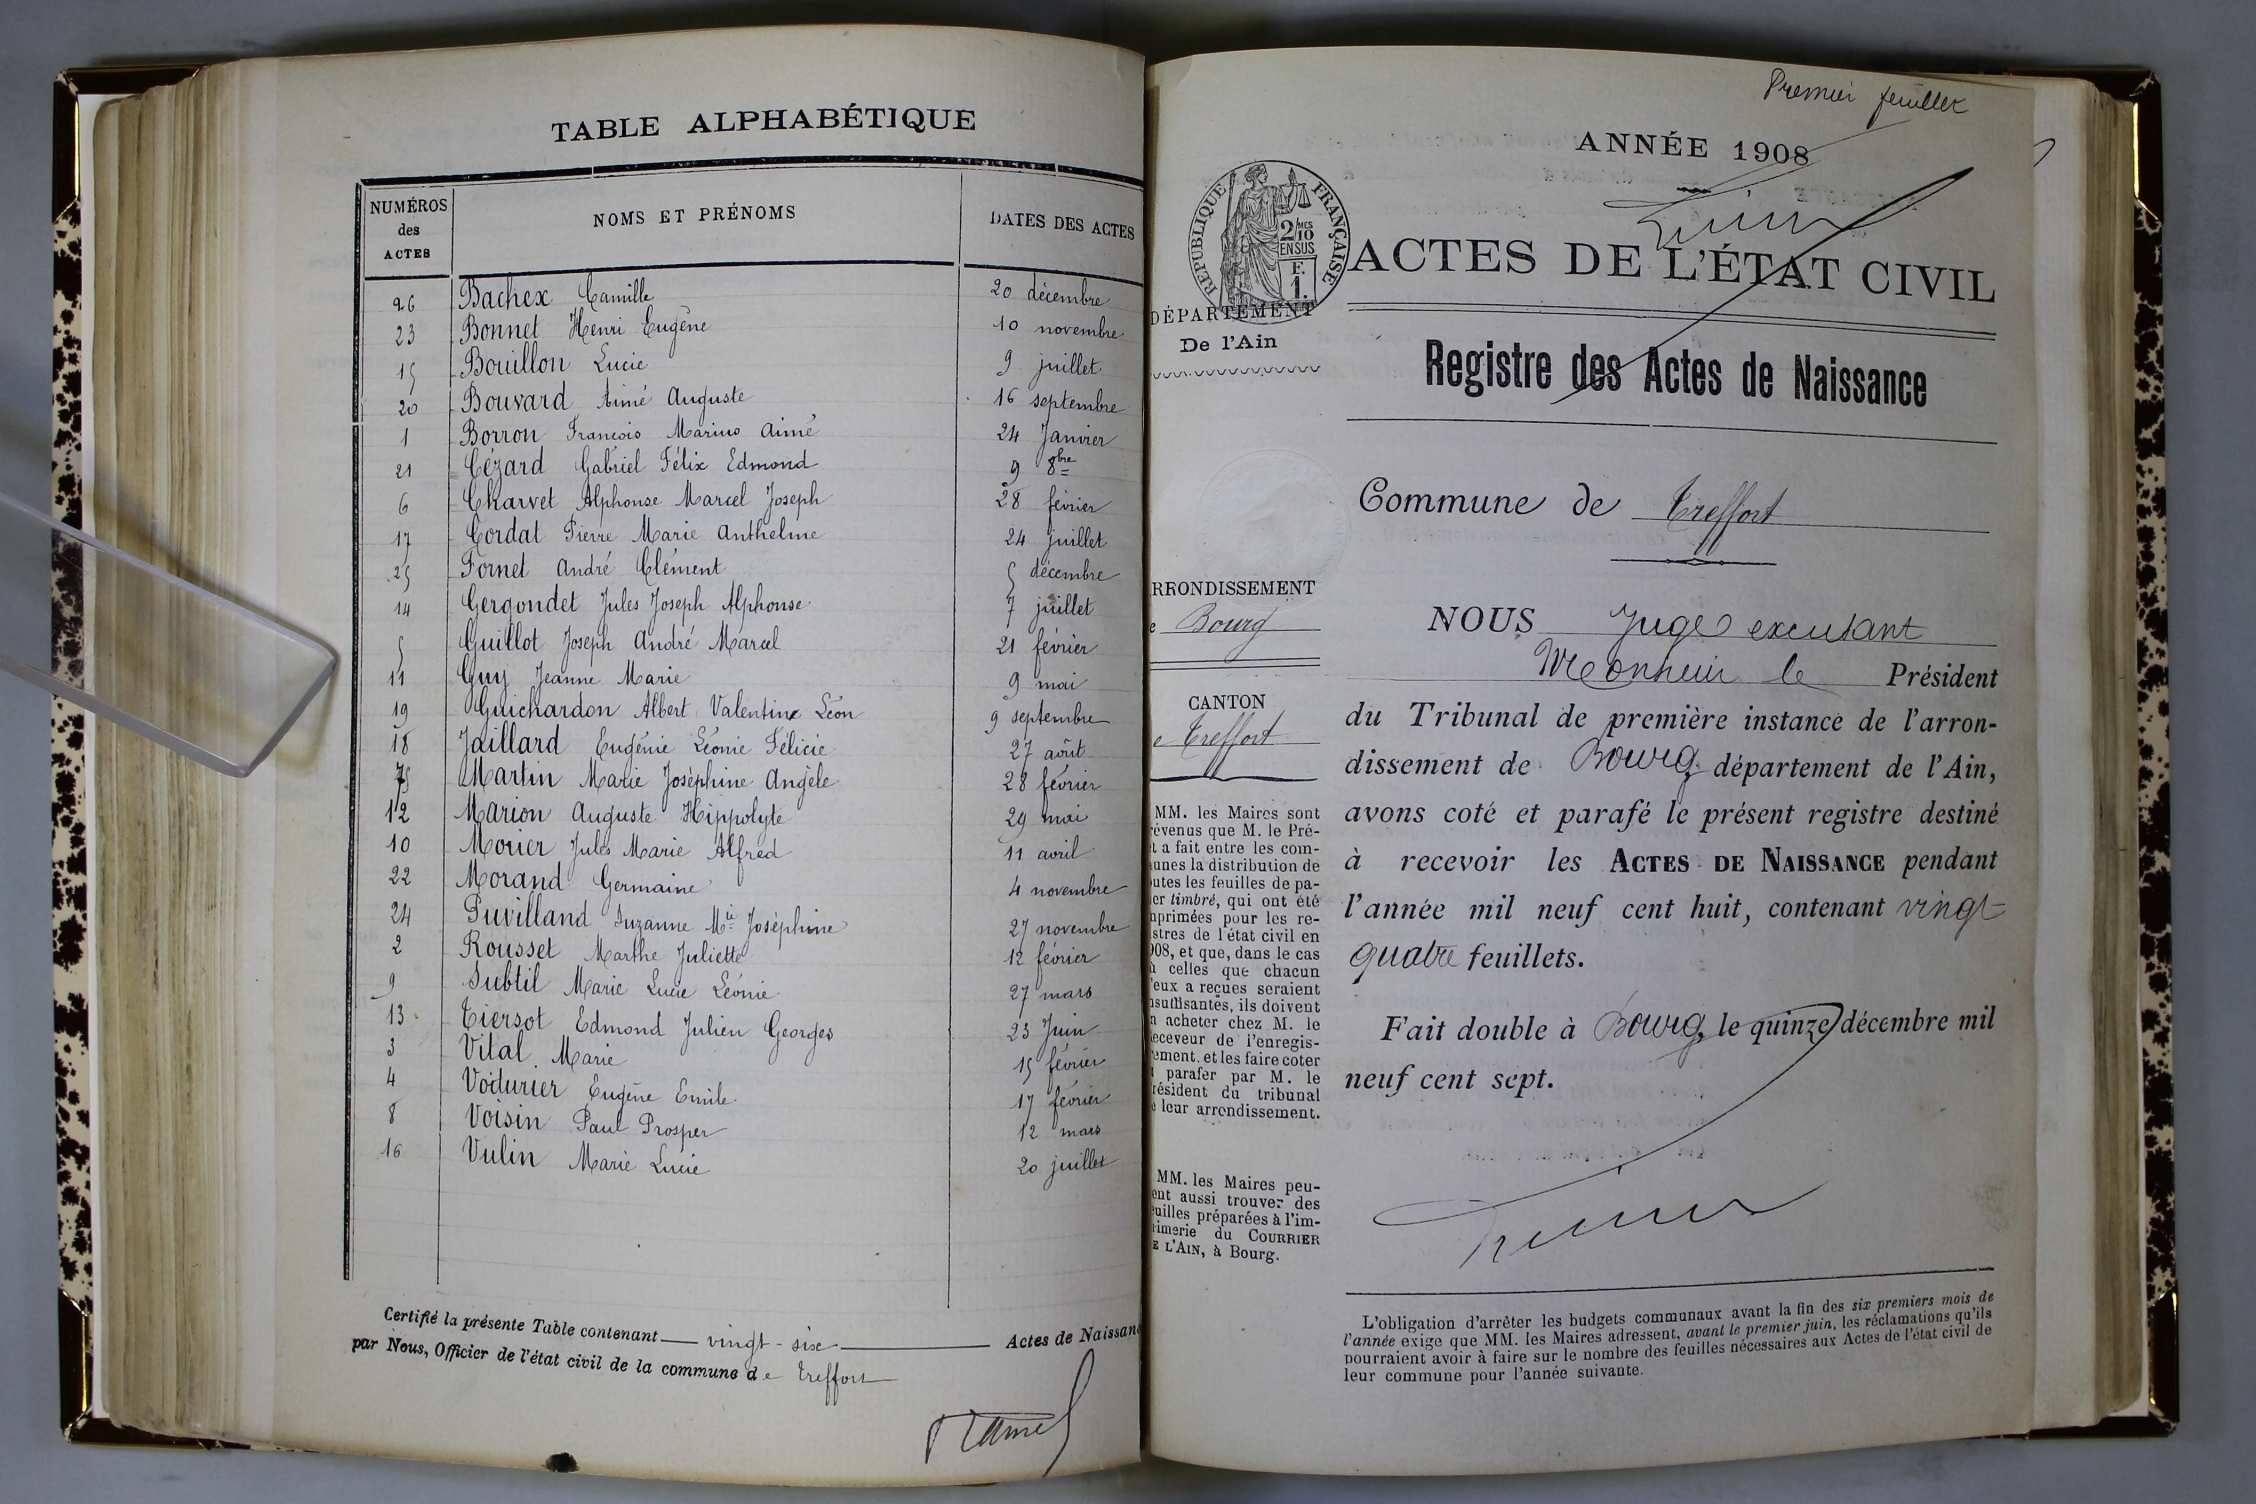 TABLE ALPHABÉTIQUE
NUMÉROS des ACTES NOMS ET PRÉNOMS DATES DES ACTES
26 Bachex Camille 20 décembre
23 Bonnet Henri Eugène 10 novembre
15 Bouillon Lucie 9 juillet
20 Bouvard Aimé Auguste 16 septembre
1 Borron François Marius Aimé 24 Janvier
21 Cézard Gabriel Félix Edmond 9 8bre
6 Charvet Alphonse Marcel Joseph 28 février
17 Cordat Pierre Marie Anthelme 24 juillet
25 Fornet André Clément 5 décembre
14 Gergondet Jules Joseph Alphonse 7 juillet
5 Guillot Joseph André Marcel 21 février
11 Guy Jeanne Marie 9 mai
19 Guichardon Albert Valentin Léon 9 septembre
18 Jaillard Eugénie Léonie Félicie 27 août
7 Martin Marie Joséphine Angèle 28 février
12 Marion Auguste Hippolyte 29 mai
10 Morier Jules Marie Alfred 11 avril
22 Morand Germaine 4 novembre
24 Puvilland Suzanne Mie Joséphine 27 novembre
2 Rousset Marthe Juliette 12 février
9 Subtil Marie Lucie Léonie 27 mars
13 Tiersot Edmond Julien Georges 23 Juin
3 Vital Marie 15 février
4 Voidurier Eugène Emile 17 février
8 Voisin Paul Prosper 12 mars
16 Vulin Marie Lucie 20 juillet
Certifié la présente Table contenant vingt-six Actes de Naissan
par Nous, Officier de l'état civil de la commune de Treffort
Premier feuillet
ANNÉE 1908
RÉPUBLIQUE FRANÇAISE
2/10
MES
EN SUS
F.
1.
ACTES DE L'ÉTAT CIVIL
DÉPARTEMENT
De l'Ain
Registre des Actes de Naissance
Commune de Treffort
RRONDISSEMENT
e Bourg
CANTON
e Treffort
MM. les Maires sont
révenus que M. le Pré-
t a fait entre les com-
unes la distribution de
outes les feuilles de pa-
er timbré, qui ont été
mprimées pour les re-
stres de l'état civil en
908, et que, dans le cas
ù celles que chacun
'eux a reçues seraient
nsuffisantes, ils doivent
n acheter chez M. le
eceveur de l'enregis-
ement. et les faire coter
t parafer par M. le
résident du tribunal
e leur arrondissement.
MM. les Maires peu-
ent aussi trouver des
euilles préparées à l'im-
rimerie du COURRIER
E L'AIN, à Bourg.
NOUS Juge excusant
Monsieur le Président
du Tribunal de première instance de l'arron-
dissement de Bourg, département de l'Ain,
avons coté et parafé le présent registre destiné
à recevoir les ACTES DE NAISSANCE pendant
l'année mil neuf cent huit, contenant vingt
quatre feuillets.
Fait double à Bourg, le quinze décembre mil
neuf cent sept.
L'obligation d'arrêter les budgets communaux avant la fin des six premiers mois de
l'année exige que MM. les Maires adressent, avant le premier juin, les réclamations qu'ils
pourraient avoir à faire sur le nombre des feuilles nécessaires aux Actes de l'état civil de
leur commune pour l'année suivante.